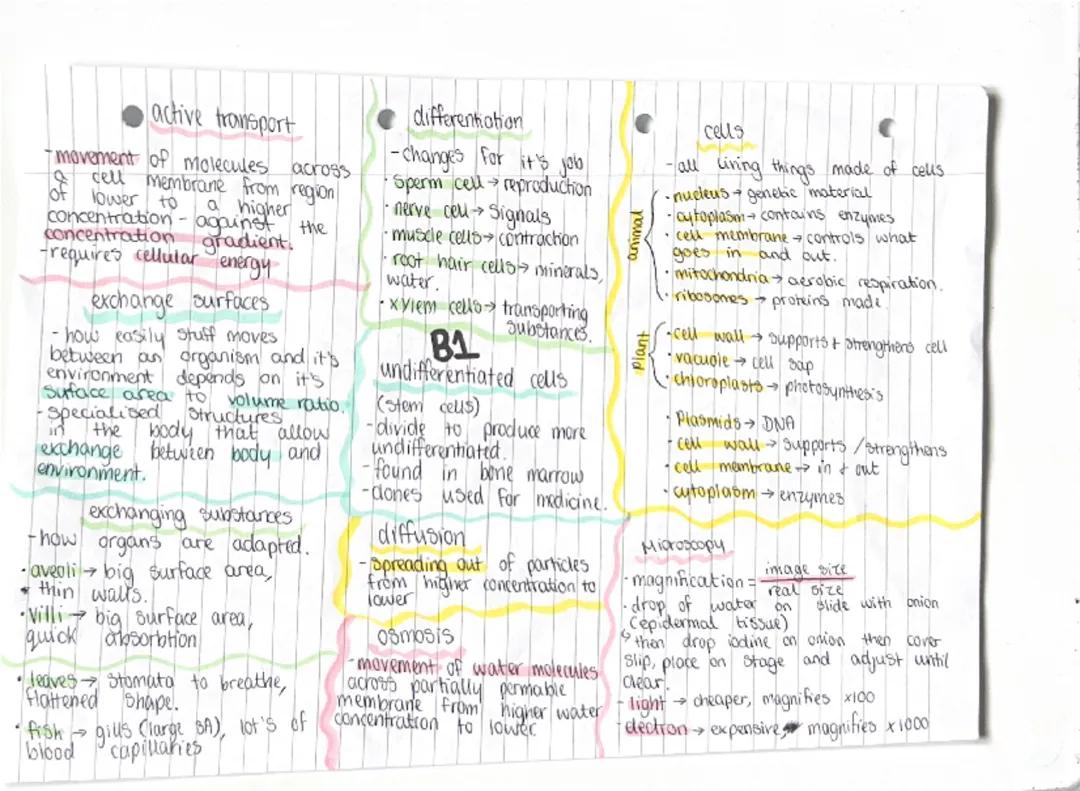 active transport
-movement of molecules across
a cell membrane from region
of lower to a higher
concentration - against the
concentration gradient.
-requires cellular energy
exchange surfaces
- how easily stuff moves
between an organism and it's
environment depends on it's
surface area to volume ratio.
-specialised structures
in the body that allow
exchange between body and
environment.
exchanging substances
-how organs are adapted.
• aveoli → big surface area,
• thin walls.
• villi → big surface area,
quick absorbtion
• leaves → stomata to breathe,
flattened shape.
• fish → gills (large SA), lot's of
blood capillaries
differentiation
-changes for it's job
• sperm cell → reproduction
• nerve cell → signals
• muscle cells → contraction
• root hair cells → minerals,
water.
• xylem cells → transporting
substances.
B1
undifferentiated cells
(stem cells)
-divide to produce more
undifferentiated.
-found in bone marrow
-clones used for medicine.
diffusion
-spreading out of particles
from higher concentration to
lower
osmosis
-movement of water molecules
across partially permable
membrane from higher water
concentration to lower
cells
-all living things made of cells
animal
• nucleus → genetic material
• cytoplasm → contains enzymes
• cell membrane → controls what
goes in and out.
• mitochondria → aerobic respiration.
• ribosomes → proteins made.
plant
• cell wall → supports + strengthens cell
• vacuole → cell sap
• chloroplasts → photosynthesis
• Plasmids → DNA
• cell wall → supports / strengthens
• cell membrane → in + out
• cytoplasm → enzymes
Microscopy
• magnification = image size
real size
• drop of water on slide with onion
(epidermal tissue)
↳ then drop iodine on onion then cover
slip, place on stage and adjust until
clear.
- light → cheaper, magnifies x100
- electron → expensive, magnifies x1000